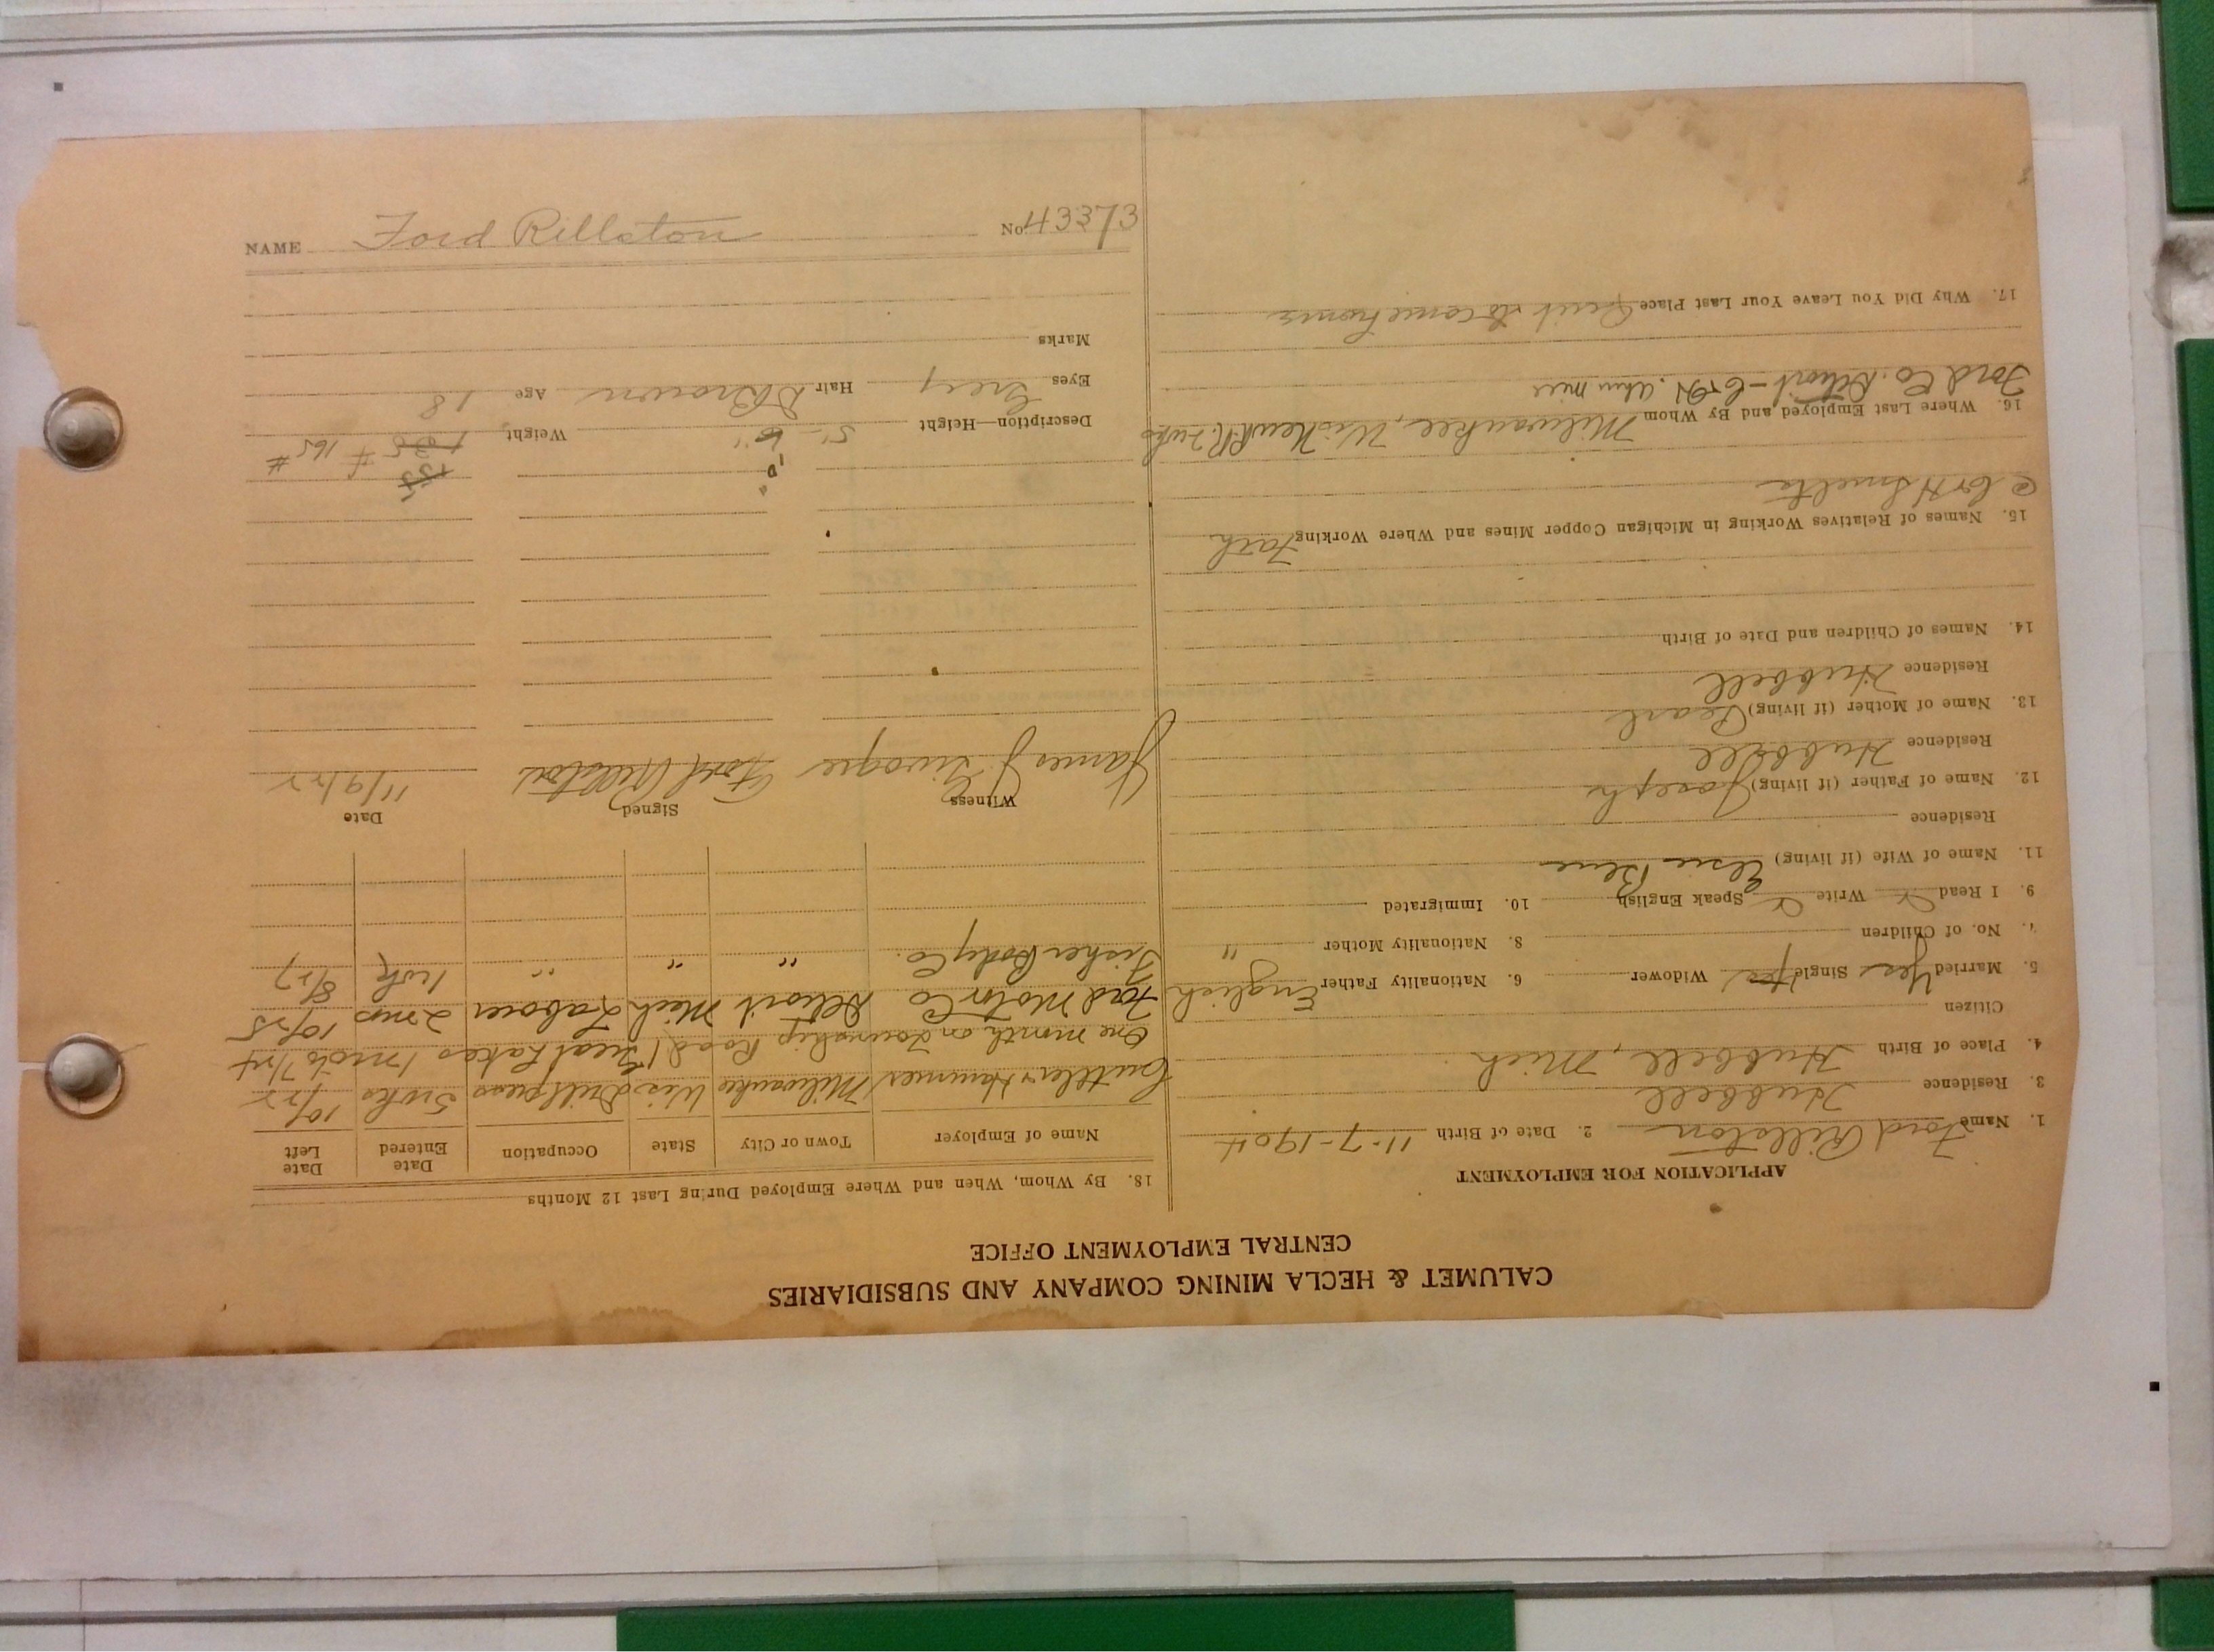 NAME Ford Rillston No. 43373
CALUMET & HECLA MINING COMPANY AND SUBSIDIARIES
CENTRAL EMPLOYMENT OFFICE
APPLICATION FOR EMPLOYMENT
1. Name Ford Rillston 2. Date of Birth 11-7-1904
3. Residence Hubbell
4. Place of Birth Hubbell, Mich
Citizen
5. Married Yes Single Widower 6. Nationality Father English
7. No. of Children 8. Nationality Mother "
9. I Read Write Speak English 10. Immigrated
11. Name of Wife (if living) Elsie
Residence
12. Name of Father (if living) Joseph
Residence Hubbell
13. Name of Mother (if living) Pearl
Residence Hubbell
14. Names of Children and Date of Birth
15. Names of Relatives Working in Michigan Copper Mines and Where Working Fath.
@ C+H Smelter
16. Where Last Employed and By Whom Milwaukee, Wis
Ford Co. Detroit - C+H.
17. Why Did You Leave Your Last Place Quit to come home
18. By Whom, When and Where Employed During Last 12 Months
Name of Employer Town or City State Occupation Date Entered Date Left
Cutler Hammer Milwaukee Wis Drill press 5 wks 10/22
One month on Township Road / Great Lakes 1 mo
Ford Motor Co Detroit Mich Laborer 2 mos 10/25
Fisher Body Co. " " " 8/27
Witness Signed Date
James J. Ford Rillston 11/9/22
Description—Height 5' Weight 135 # 165 #
155
Eyes Grey Hair D Brown Age 18
Marks